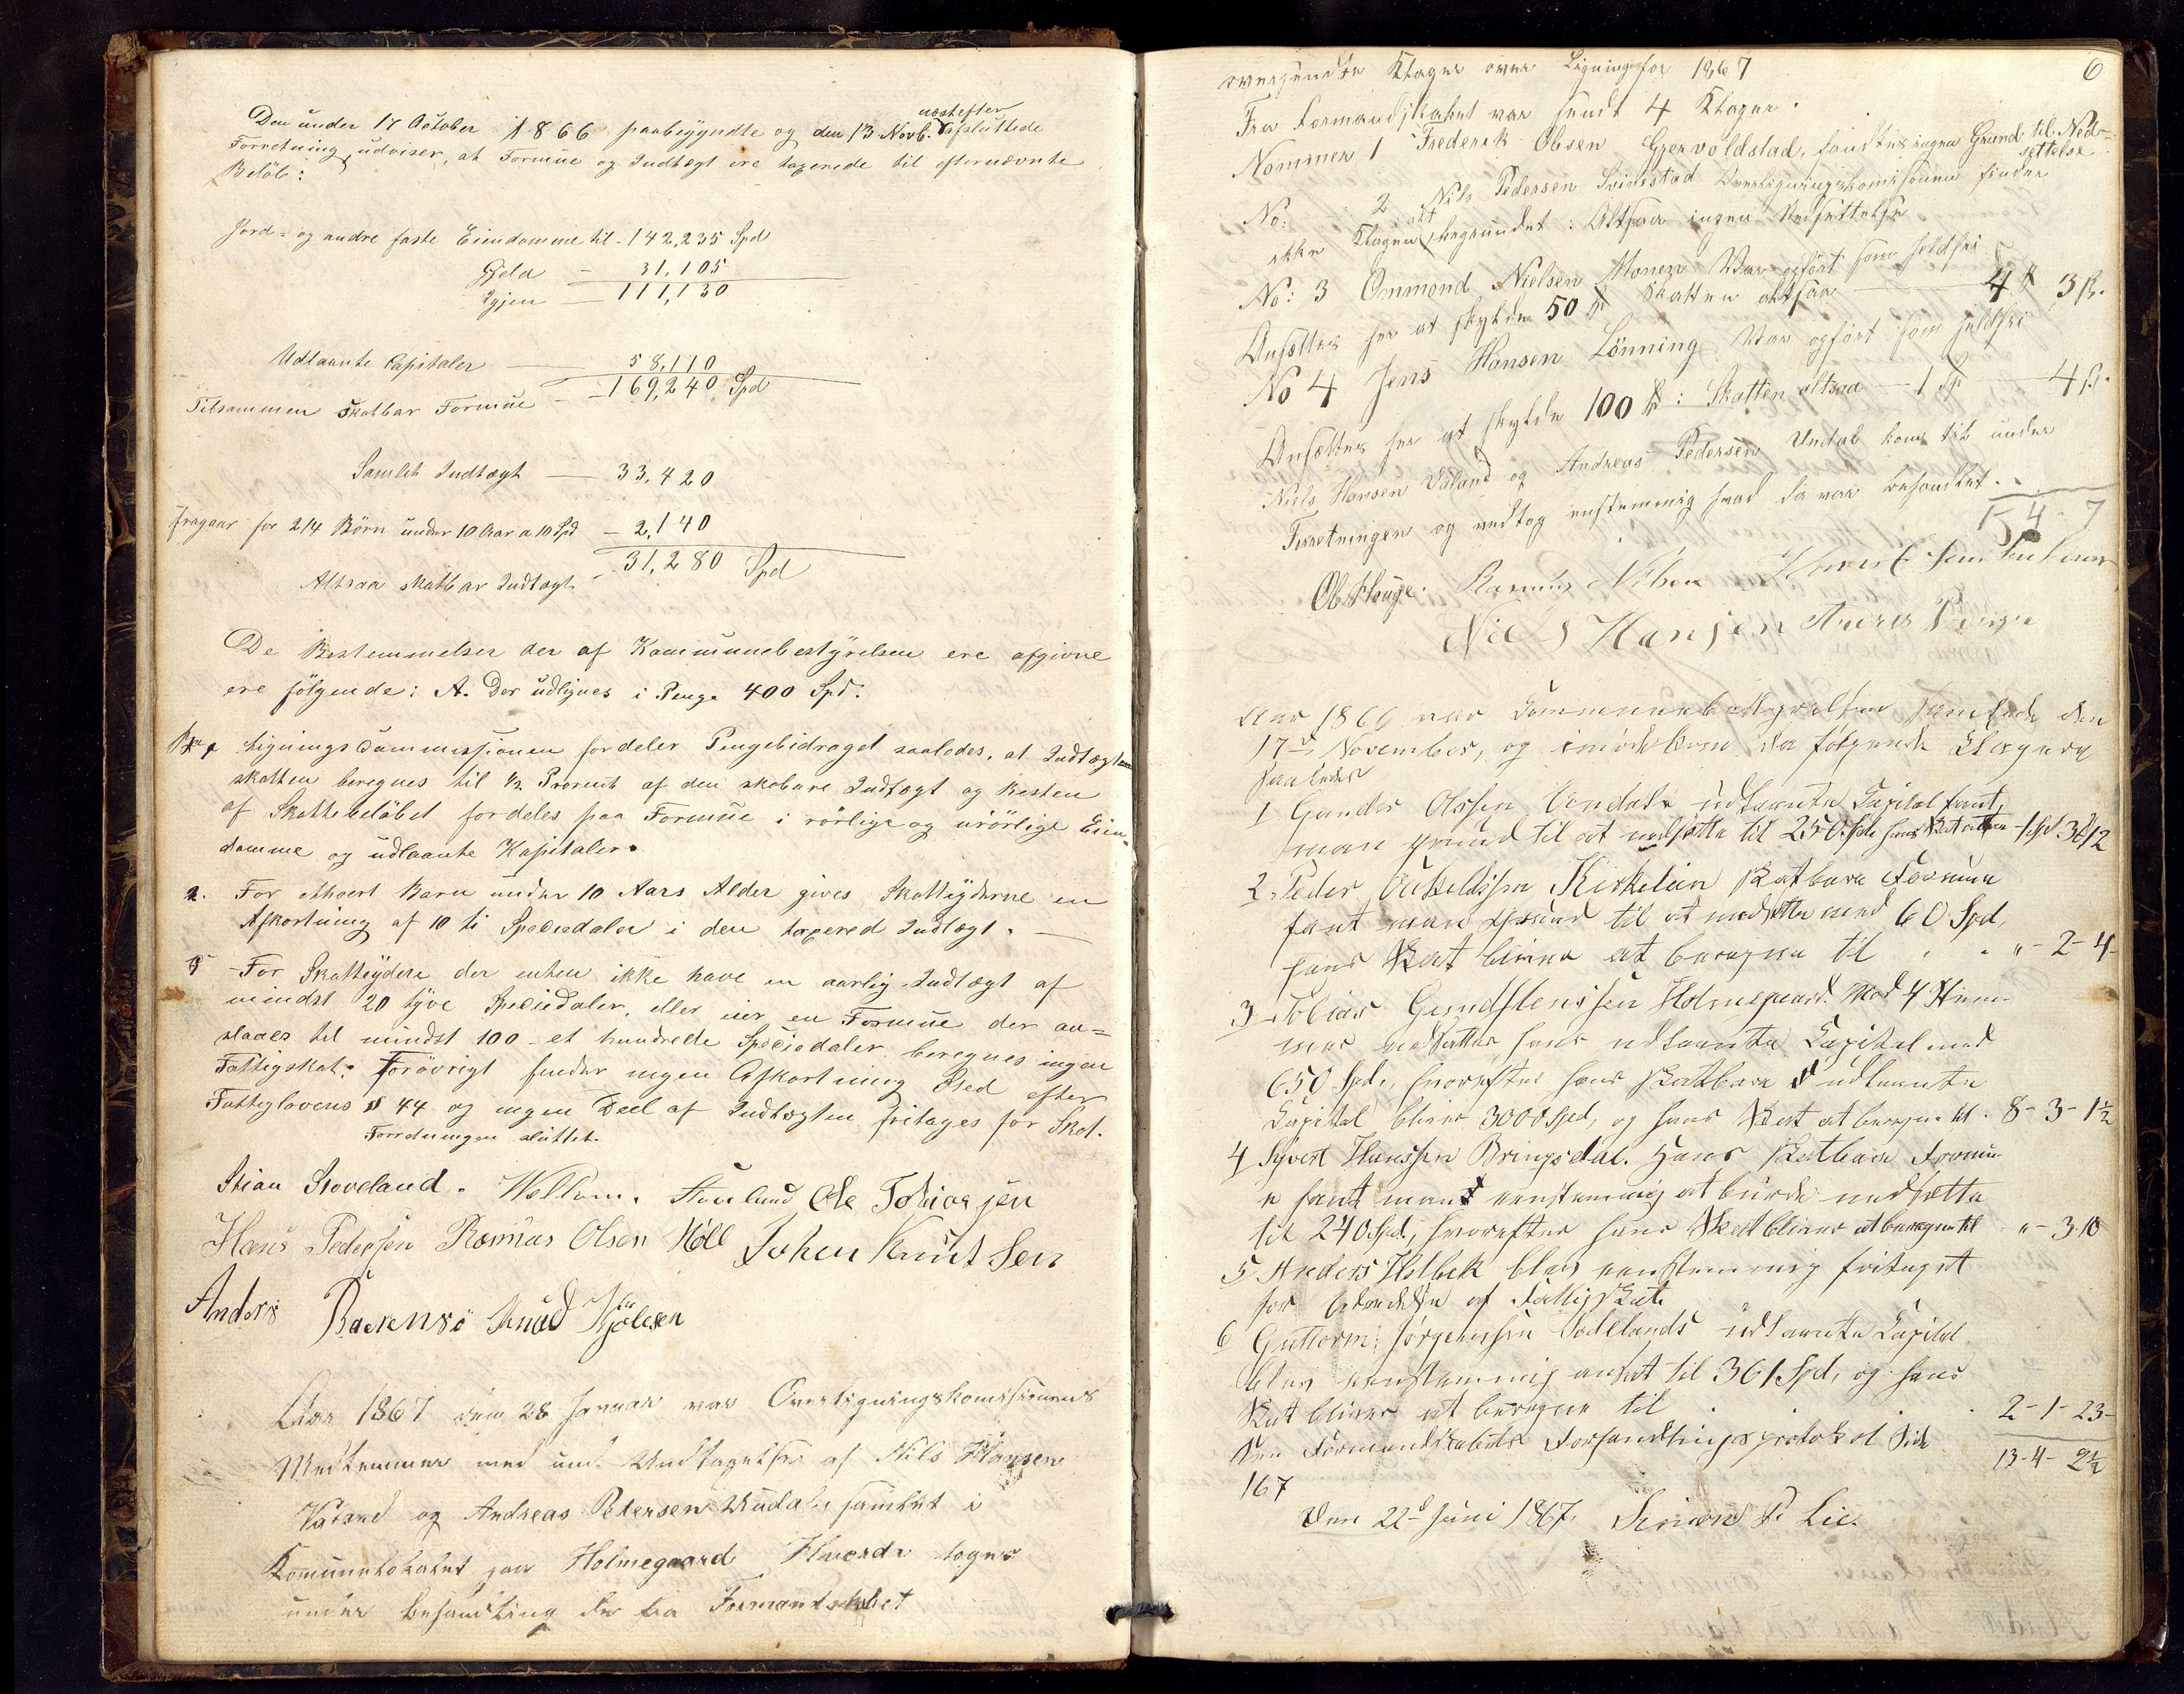 Den under 17 October 1866 paabegyndte og den 13 Novb. næstefter afsluttede
Forretning udviser, at Formue og Indtægt ere taxerede til efternævnte
Beløb:
Jord- og andre faste Eiendomme til - 142,235 Spd
Gjeld - 31,105
Igjen - 111,130
Udlaante Capitaler - 58,110
Tilsammen skatbar Formue - 169,240 Spd
Samlet Indtægt - 33,420
fragaar for 214 Børn under 10 Aar a 10 Spd - 2,140
Altsaa skatbar Indtægt - 31,280 Spd
De Bestemmelser der af Kommunebestyrelsen ere afgivne
ere følgende: A. Der udlignes i Penge 400 Spd.
Ligningscommissionen fordeler Pengebidraget saaledes, at Indtægts
skatten beregnes til 1/2 Procent af den skatbare Indtægt og Resten
af Skattebeløbet fordeles paa Formue i rørlige og urørlige Eien-
domme og udlaante Kapitaler.
2. For ethvert Barn under 10 Aars Alder gives Skatteyderne en
Afkortning af 10 ti Speciedaler i den taxered Indtægt. -
3 For Skatteydere der enten ikke have en aarlig Indtægt af
mindst 20 tyve Speciedaler, eller eier en Formue der an=
slaaes til mindst 100 - et hundrede Speciedaler beregnes ingen
Fattigskat. Forøvrigt finder ingen Afkortning Sted efter
Fattiglovens § 44 og ingen Deel af Indtægten fritages for Skat.
Forretningen sluttet.
Stian Stoveland. Ole Tobiassen
Hans Pedersen Rasmus Olsen Høll Johen Knutsen
Anders Knud
Aar 1867 den 28 Januar var Overligningskomisionens
Medlemmer med und Undtagelse af Nils Hansen
Valand og Andreas Petersen Undal samlet i
Komunelokalet paa Holmegaard Hvorda toges
under Behandling de fra Formandskabet
6
oversendte Klager over Ligningen for 1867
Fra Formandskabet var sendt 4 Klager.
Nommer 1 Frederik Olsen Gjervoldstad, fandtes ingen Grund til Ned-
settelse
No: 2 Nils Pedersen Overligningskomisionen finder
ikke Klagen begrundet: Altsaa ingen Nedsettelse
No: 3 Ommond Nielsen Monen Var opført som gjeldfri
Ansettes her at skylde 50 Skatten altsaa - 4 3 ß.
No 4 Jens Hansen Lønning Var opført som gjeldfri
Ansettes her at skylde 100: Skatten altsaa - 1 - 4 ß.
Niels Hansen Valand og Andreas Pedersen Undal kom til under
Forretningen og vedtog enstemmig hvad da var behandlet.
1 - 4 - 7
Ob Houge. Rasmus Nilsen
Niels Hansen
Aar 1866 var Communebestyrelsen samlede den
17de November, og imødekom da følgende Klagere
saaledes
1 Gunder Olssen Vendal udlaante Capital fant
man grund til at nedsætte til 250 Spd hans Skat
2 Peder Kirkelien skatbare Formue
fant man grund til at nedsætte med 60 Spd,
hans Skat bliver at beregne til " - 2 - 4
3 Tobias Gundstenssen Holmegaard. Mod 4 Stem-
mer nedsattes hans udlaante Capital med
650 Spd, hvorefter hans skatbare udlaante
Capital bliver 3000 Spd, og hans Skat at beregne til. 8 - 3 - 1 1/2
4 Syvert Hanssen Bringsdal. Hans skatbare Formu-
e fant man eenstemmig at burde nedsætte
til 240 Spd, hvorefter hans Skat bliver at beregne til " - 3. 10
5 Anders Holbek blev eenstemmig fritaget
for Betalelse af Fattigskat.
6 Guttorm Jørgenssen Sodelands udlaante Capital
blev eenstemmig ansat til 361 Spd, og hans
Skat bliver at beregne til 2 - 1 - 23 -
Formandskabets Forhandlingsprotokol Side 13 - 4 - 2 1/2
167
Den 22d Juni 1867. Simon P. Lie.